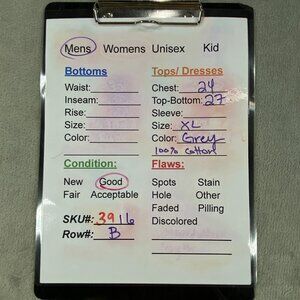 Mens Womens Unisex Kid
Bottoms
Waist:
Inseam:
Rise:
Size:
Color:
Tops/ Dresses
Chest: 24
Top-Bottom: 27
Sleeve:
Size: XL
Color: Grey
100% cotton
Condition:
New Good
Fair Acceptable
SKU#: 3916
Row#: B
Flaws:
Spots Stain
Hole Other
Faded Pilling
Discolored